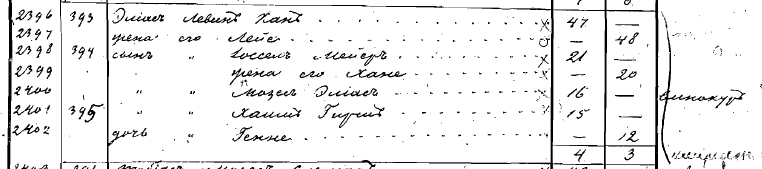 2396 393 Элiасъ Левинъ Ханъ 47 —
2397 жена его Лейе — 48
2398 394 сынъ " Iоссель Мейеръ 21 —
2399 жена его Хане — 20
2400 " " Элiасъ 16 —
2401 395 " " Хаимъ Гиршъ 15 —
2402 дочь " Генне — 12
4 3